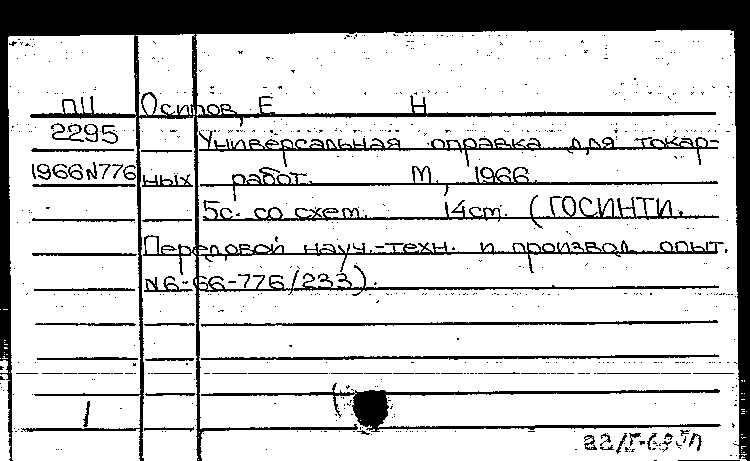 ПЦ Осипов, Е Н
2295 Универсальная оправка для токар-
1966N776 ных работ. М., 1966.
5с. со схем. 14cm. (ГОСИНТИ.
Передовой науч.-техн. и производ. опыт.
N6-66-776/233).
1
22/I-69